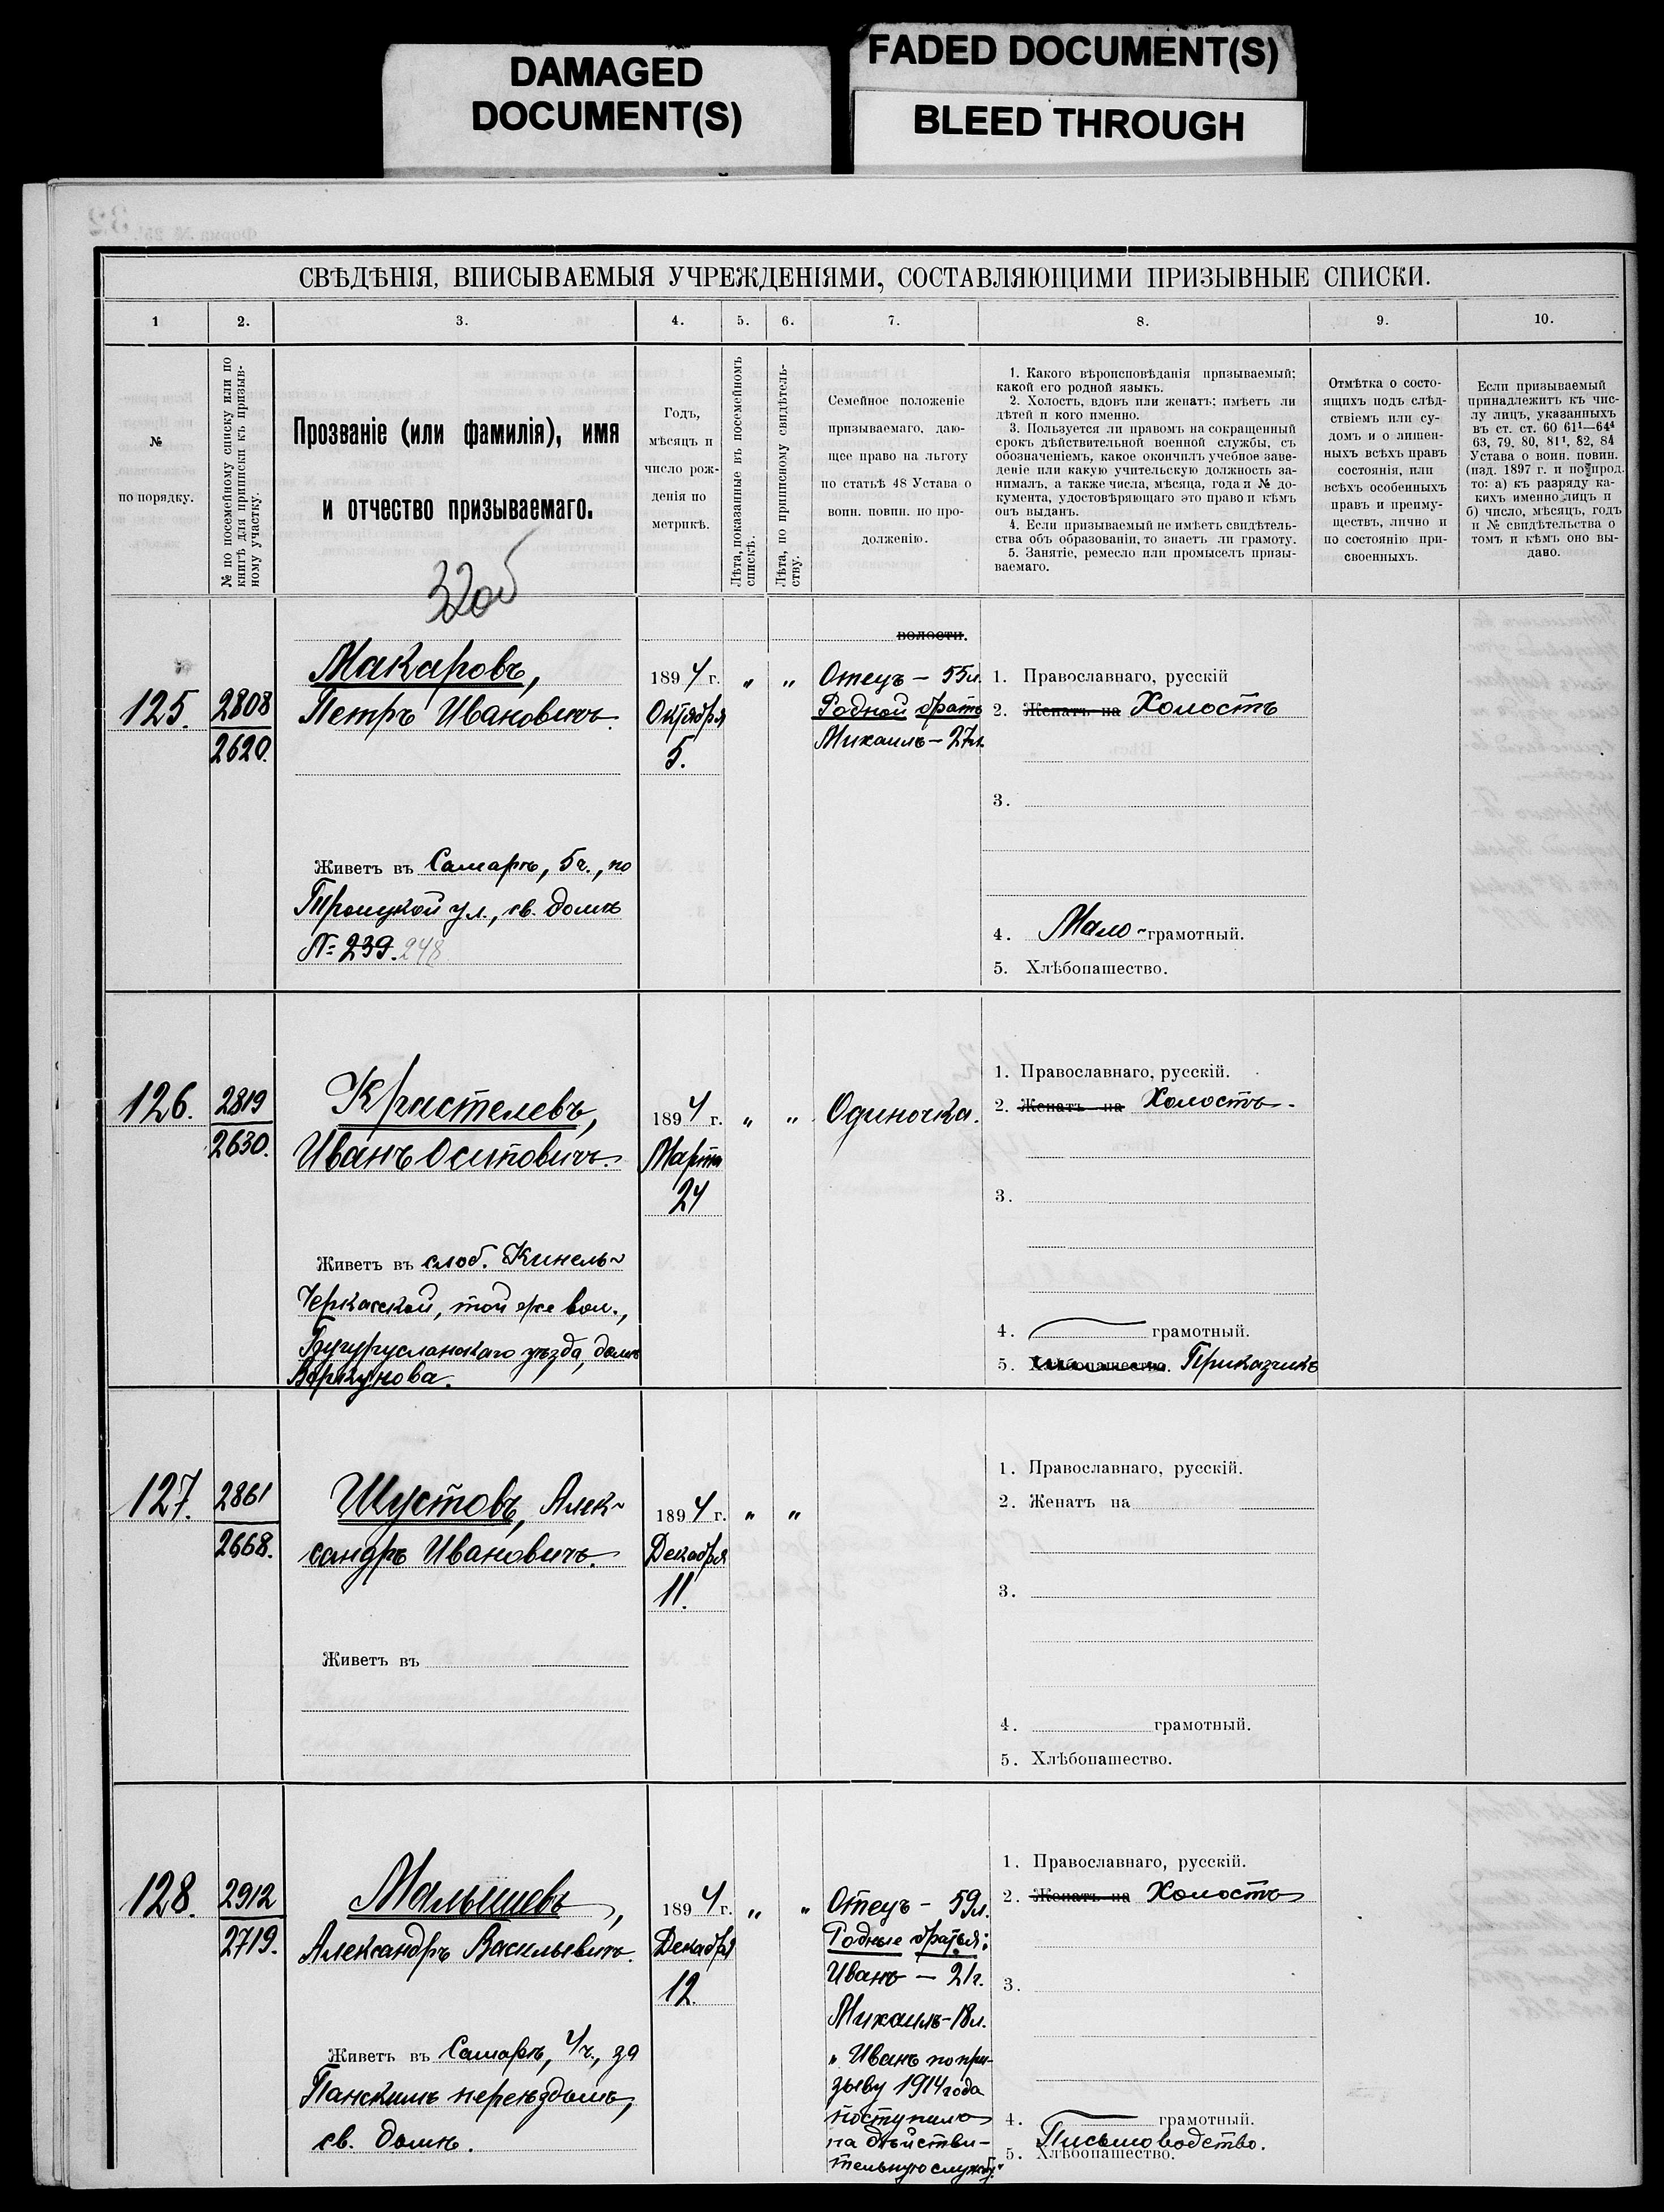 DAMAGED
DOCUMENT(S)
FADED DOCUMENT(S)
BLEED THROUGH
СВѢДѢНІЯ, ВПИСЫВАЕМЫЯ УЧРЕЖДЕНІЯМИ, СОСТАВЛЯЮЩИМИ ПРИЗЫВНЫЕ СПИСКИ.
1
2.
3.
4.
5.
6.
7.
8.
9.
10.
№
по порядку.
№ по посемейному списку или по
книгѣ для приписки къ призыв-
ному участку.
Прозваніе (или фамилія), имя
и отчество призываемаго.
Годъ,
мѣсяцъ и
число рож-
денія по
метрикѣ.
Лѣта, показанные въ посемейномъ
спискѣ.
Лѣта, по приписному свидѣтель-
ству.
Семейное положеніе
призываемаго, даю-
щее право на льготу
по статьѣ 48 Устава о
воин. повин. по про-
долженію.
1. Какого вѣроисповѣданія призываемый;
какой его родной языкъ.
2. Холостъ, вдовъ или женатъ; имѣетъ ли
дѣтей и кого именно.
3. Пользуется ли правомъ на сокращенный
срокъ дѣйствительной военной службы, съ
обозначеніемъ, какое окончилъ учебное заве-
деніе или какую учительскую должность за-
нималъ, а также числа, мѣсяца, года и № до-
кумента, удостовѣряющаго это право и кѣмъ
онъ выданъ.
4. Если призываемый не имѣетъ свидѣтель-
ства объ образованіи, то знаетъ ли грамоту.
5. Занятіе, ремесло или промыселъ призы-
ваемаго.
Отмѣтка о состо-
ящихъ подъ слѣд-
ствіемъ или су-
домъ и о лишен-
ныхъ всѣхъ правъ
состоянія, или
всѣхъ особенныхъ
правъ и преиму-
ществъ, лично и
по состоянію при-
своенныхъ.
Если призываемый
принадлежитъ къ чис-
лу лицъ, указанныхъ
въ ст. ст. 60 61¹—64⁴
63, 79, 80, 81¹, 82, 84
Устава о воин. повин.
(изд. 1897 г. и по прод.
то: а) къ разряду ка-
кихъ именно лицъ и
б) число, мѣсяцъ, годъ
и № свидѣтельства о
томъ и кѣмъ оно вы-
дано.
32об
125.
2808
2620.
Макаровъ,
Петръ Ивановичъ.
Живетъ въ Самарѣ, 5ч., по
Троицкой ул., св. домѣ
№ 239. 248
1894 г.
Октября
5.
" "
волости.
Отецъ – 55л.
Родной братъ
Михаилъ – 27л.
1. Православнаго, русскій
2. Женатъ на Холостъ
3.
4. Мало-грамотный.
5. Хлѣбопашество.
126.
2819
2630.
Кристелевъ,
Иванъ Осиповичъ.
Живетъ въ слоб. Кинель-
Черкасской, той же вол.,
Бугурусланскаго уѣзда, домъ
1894 г.
Марта
24
" "
Одиночка.
1. Православнаго, русскій.
2. Женатъ на Холостъ.
3.
4. грамотный.
5. Хлѣбопашество. Приказчикъ
127.
2861
2668.
Шустовъ, Алек-
сандръ Ивановичъ.
Живетъ въ
1894 г.
Декабря
11.
" "
1. Православнаго, русскій.
2. Женатъ на
3.
4. грамотный.
5. Хлѣбопашество.
128.
2912
2719.
Малышевъ,
Александръ Васильевичъ.
Живетъ въ Самарѣ, 4ч., за
Панскимъ переѣздомъ,
св. домѣ.
1894 г.
Декабря
12.
" "
Отецъ – 59л.
Родные братья:
Иванъ – 21г.
Михаилъ – 18л.
"Иванъ по при-
зыву 1914 года
поступилъ
на дѣйстви-
тельную служб."
1. Православнаго, русскій.
2. Женатъ на Холостъ
3.
4. грамотный.
Письмоводство.
5. Хлѣбопашество.